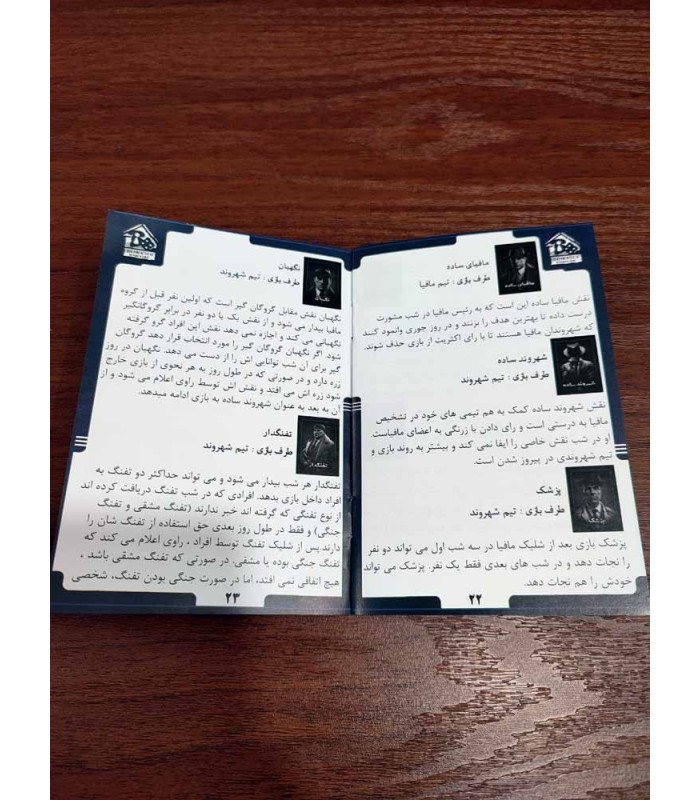 مافیای ساده
طرف بازی : تیم مافیا
مافیای ساده
نقش مافیا ساده این است که به رئیس مافیا در شب مشورت
درست داده تا بهترین هدف را بزنند و در روز جوری وانمود کنند
که شهروندان مافیا هستند تا با رای اکثریت از بازی حذف شوند.
شهروند ساده
طرف بازی : تیم شهروند
شهروند ساده
نقش شهروند ساده کمک به هم تیمی های خود در تشخیص
مافیا به درستی است و رای دادن با زرنگی به اعضای مافیاست.
او در شب نقش خاصی را ایفا نمی کند و بیشتر به روند بازی و
تیم شهروندی در پیروز شدن است.
پزشک
طرف بازی : تیم شهروند
پزشک
پزشک بازی بعد از شلیک مافیا در سه شب اول می تواند دو نفر
را نجات دهد و در شب های بعدی فقط یک نفر. پزشک می تواند
خودش را هم نجات دهد.
۲۲
نگهبان
طرف بازی : تیم شهروند
نگهبان
نگهبان نقش مقابل گروگان گیر است که اولین نفر قبل از گروه
مافیا بیدار می شود و از نقش یک یا دو نفر در برابر گروگانگیر
نگهبانی می کند و اجازه نمی دهد نقش این افراد گرو گرفته
شود. اگر نگهبان گروگان گیر را مورد انتخاب قرار دهد گروگان
گیر برای آن شب توانایی اش را از دست می دهد. نگهبان در روز
زره دارد و در صورتی که در طول روز به هر نحوی از بازی خارج
شود زره اش می افتد و نقش اش توسط راوی اعلام می شود و از
آن به بعد به عنوان شهروند ساده به بازی ادامه میدهد.
تفنگدار
طرف بازی : تیم شهروند
تفنگدار
تفنگدار هر شب بیدار می شود و می تواند حداکثر دو تفنگ به
افراد داخل بازی بدهد. افرادی که در شب تفنگ دریافت کرده اند
از نوع تفنگی که گرفته اند خبر ندارند (تفنگ مشقی و تفنگ
جنگی) و فقط در طول روز بعدی حق استفاده از تفنگ شان را
دارند.پس از شلیک تفنگ توسط افراد ، راوی اعلام می کند که
تفنگ جنگی بوده یا مشقی. در صورتی که تفنگ مشقی باشد ،
هیچ اتفاقی نمی افتد، اما در صورت جنگی بودن تفنگ، شخصی
۲۳